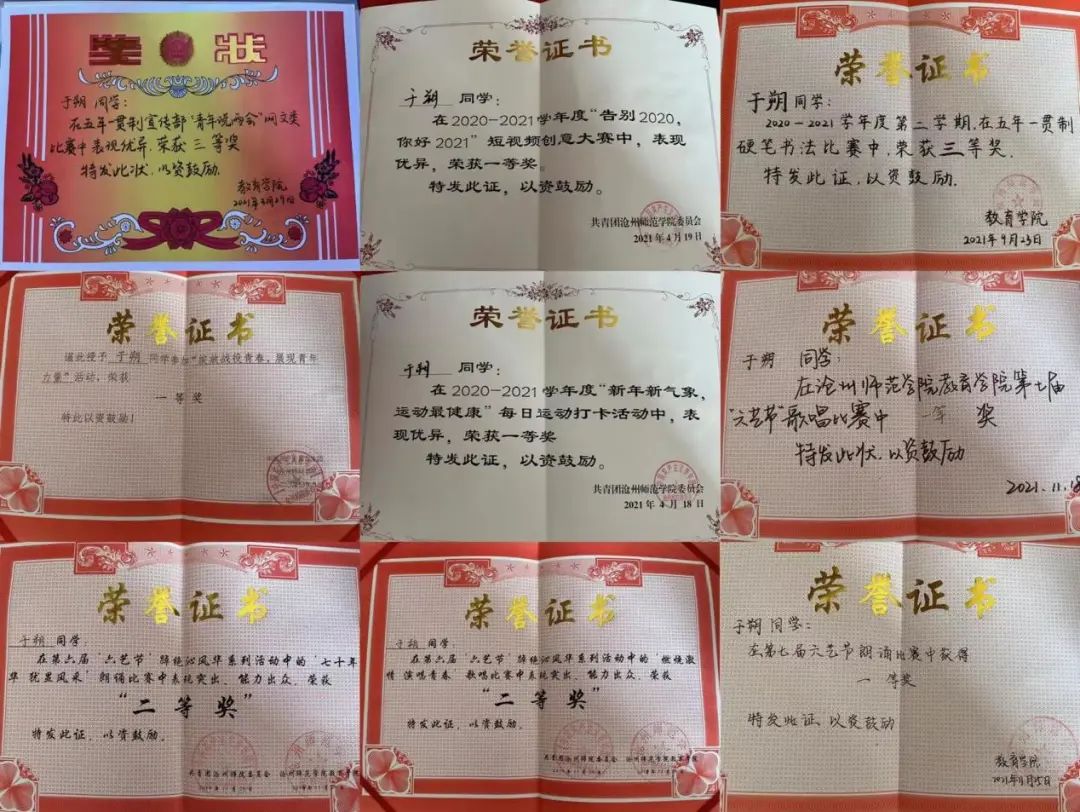 奖状
于朔 同学：
在五年一贯制宣传部"青年说两会"网文类
比赛中表现优异，荣获 三等奖
特发此状，以资鼓励。
教育学院
荣誉证书
于朔 同学：
在2020-2021学年度"告别2020，
你好2021"短视频创意大赛中，表现
优异，荣获一等奖。
特发此证，以资鼓励。
共青团沧州师范学院委员会
2021年4月19日
荣誉证书
于朔同学：
2020-2021学年度第二学期，在五年一贯制
硬笔书法比赛中，荣获三等奖．
特发此证，以资鼓励．
教育学院
2021年9月23日
荣誉证书
谨此授予 于朔 同学参加"绽放战役青春，展现青年
力量"活动，荣获
一等奖
特此以资鼓励！
荣誉证书
于朔 同学：
在2020-2021学年度"新年新气象，
运动最健康"每日运动打卡活动中，表
现优异，荣获一等奖
特发此证，以资鼓励。
共青团沧州师范学院委员会
2021年4月18日
荣誉证书
于朔 同学：
在沧州师范学院教育学院第七届
"六艺节"歌唱比赛中 一等 奖
特发此状，以资鼓励
2021.11.18
荣誉证书
于朔 同学
在第六届"六艺节" 风华系列活动中的"七十年
华 犹显风采"朗诵比赛中表现突出、能力出众，荣获
"二等奖"
特发此证，以资鼓励。
共青团沧州师院委员会 沧州师范学院教育学院
荣誉证书
于朔 同学
在第六届"六艺节" 风华系列活动中的"燃烧激
情 演唱青春"歌唱比赛中表现突出、能力出众，荣获
"二等奖"
特发此证，以资鼓励。
共青团沧州师院委员会 沧州师范学院教育学院
荣誉证书
于朔同学：
在第七届六艺节朗诵比赛中获得
一等奖
特发此证，以资鼓励
教育学院